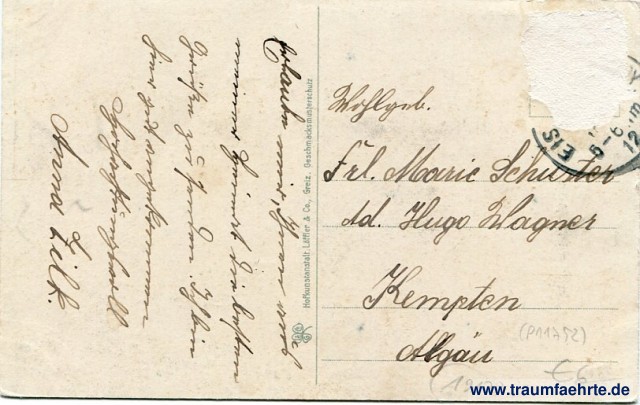 Erlaube mir, Ihnen aus
meiner Heimat die besten
Grüße zu senden. Ich bin
hier gut angekommen
Hochachtungsvoll
Anna Zilk.
Hofkunstanstalt Löffler & Co., Greiz. Geschmacksmusterschutz
Wohlgeb.
Frl. Marie Schuster
Ad. Hugo Wagner
Kempten
Algäu
(P11752)
EIS
5-6
12
www.traumfaehrte.de